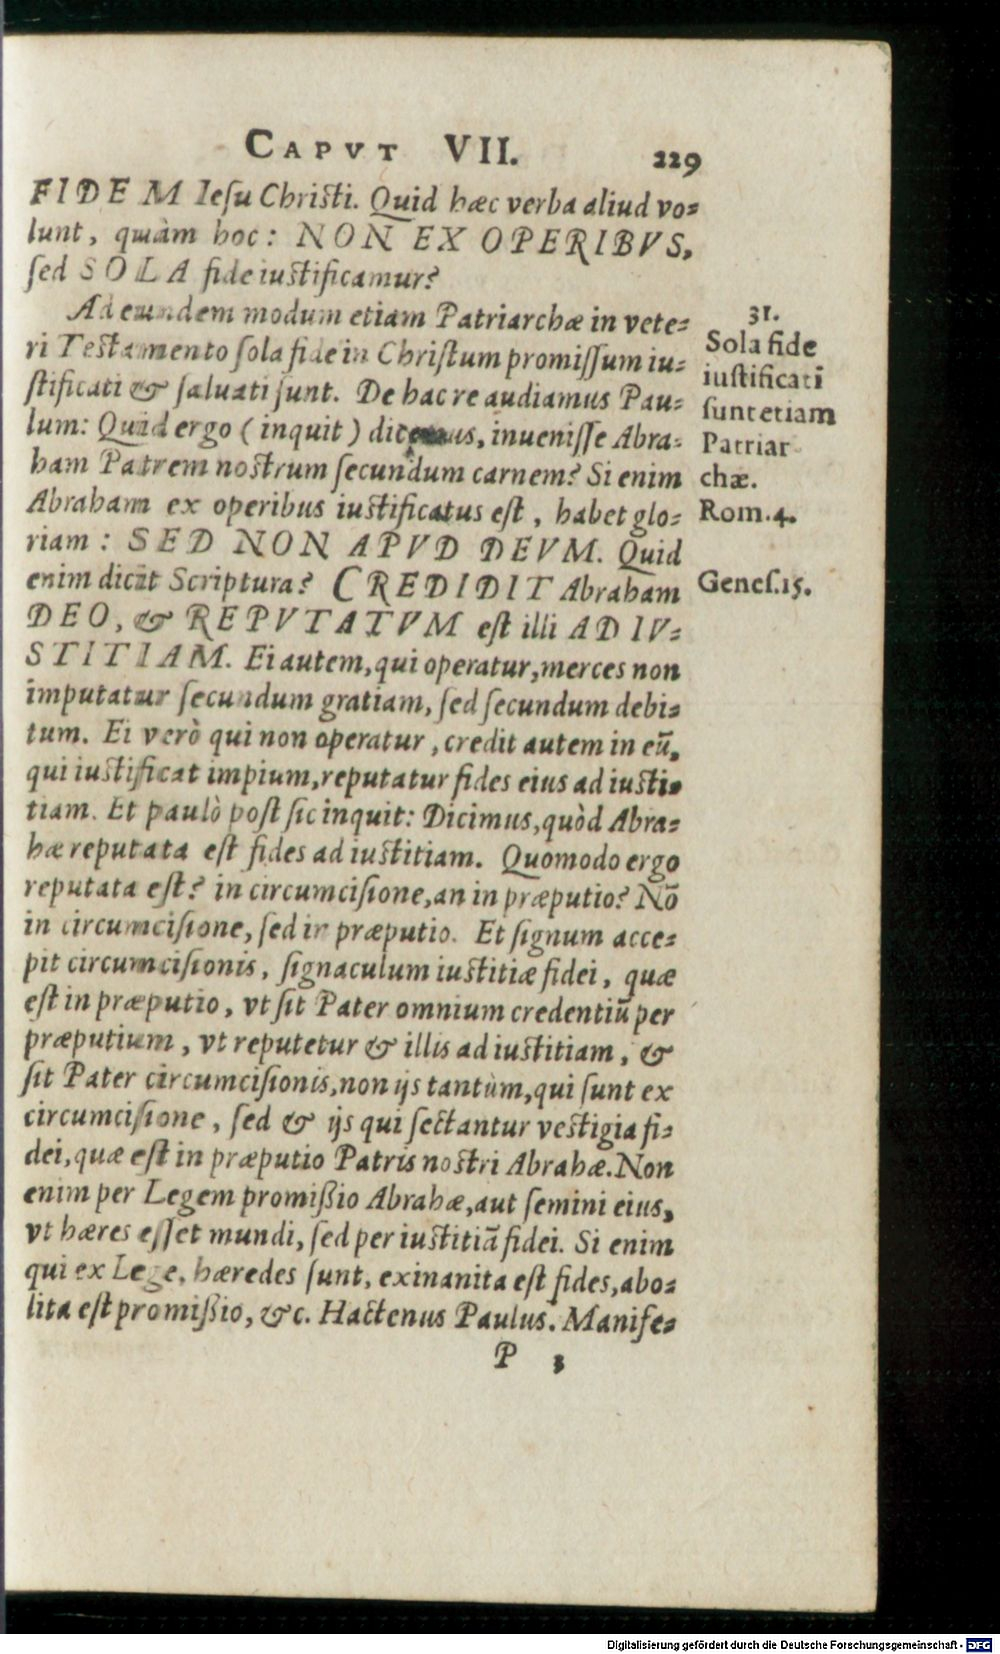 CAPVT VII. 229
FIDEM Ieſu Chriſti. Quid hæc verba aliud vo-
lunt, quàm hoc: NON EX OPERIBVS,
ſed SOLA fide iuſtificamur?
Ad eundem modum etiam Patriarchæ in vete-
ri Teſtamento ſola fide in Chriſtum promiſſum iu-
ſtificati & ſaluati ſunt. De hac re audiamus Pau-
lum: Quid ergo (inquit) dicemus, inueniſſe Abra-
ham Patrem noſtrum ſecundum carnem? Si enim
Abraham ex operibus iuſtificatus eſt, habet glo-
riam: SED NON APVD DEVM. Quid
enim dicit Scriptura? CREDIDIT Abraham
DEO, & REPVTATVM eſt illi AD IV-
STITIAM. Ei autem, qui operatur, merces non
imputatur ſecundum gratiam, ſed ſecundum debi-
tum. Ei verò qui non operatur, credit autem in eū,
qui iuſtificat impium, reputatur fides eius ad iuſti-
tiam. Et paulò poſt ſic inquit: Dicimus, quòd Abra-
hæ reputata eſt fides ad iuſtitiam. Quomodo ergo
reputata eſt? in circumciſione, an in præputio? Nō
in circumciſione, ſed in præputio. Et ſignum acce-
pit circumciſionis, ſignaculum iuſtitiæ fidei, quæ
eſt in præputio, vt ſit Pater omnium credentiū per
præputium, vt reputetur & illis ad iuſtitiam, &
ſit Pater circumciſionis, non ijs tantùm, qui ſunt ex
circumciſione, ſed & ijs qui ſectantur veſtigia fi-
dei, quæ eſt in præputio Patris noſtri Abrahæ. Non
enim per Legem promißio Abrahæ, aut ſemini eius,
vt hæres eſſet mundi, ſed per iuſtitiā fidei. Si enim
qui ex Lege, hæredes ſunt, exinanita eſt fides, abo-
lita eſt promißio, &c. Hactenus Paulus. Manife-
P 3
31.
Sola fide
iuſtificati
ſunt etiam
Patriar-
chæ.
Rom. 4.
Geneſ. 15.
Digitalisierung gefördert durch die Deutsche Forschungsgemeinschaft - DFG